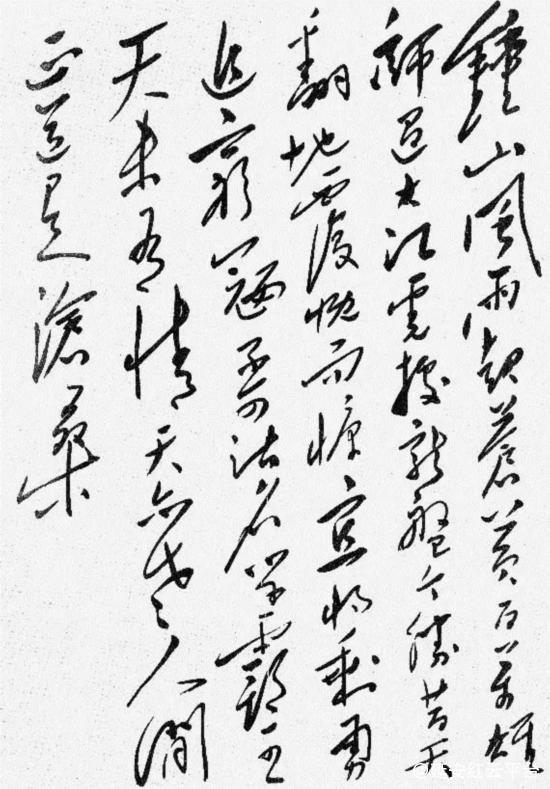 鍾山風雨起蒼黃百萬雄
師過大江虎據龍盤今勝昔天
翻地覆慨而慷宜將剩勇
追窮寇不可沽名學霸王
天未有情天亦老人間
正道是滄桑
@延安红云平台